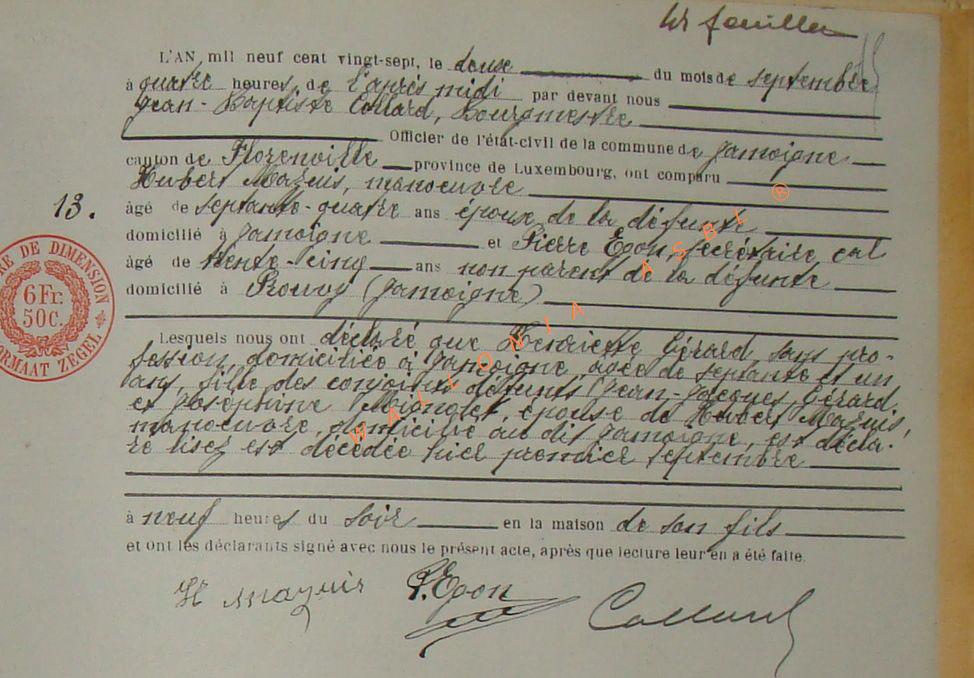 feuillet
L'AN mil neuf cent vingt-sept, le deuse du mois de septembre
à quatre heures, de l'après midi par devant nous
Jean-Baptiste Collard, Bourgmestre
Officier de l'état-civil de la commune de Jamoigne
canton de Florenville province de Luxembourg, ont comparu
Hubert Mazuis, manoeuvre
13.
âgé de septante-quatre ans époux de la défunte
domicilié à Jamoigne et Pierre Egon, secrétaire cal
âgé de trente-cinq ans non parent de la défunte
domicilié à Prouvy (Jamoigne)
RE DE DIMENSION
6 Fr.
50c.
FORMAAT ZEGEL
Lesquels nous ont déclaré que Henriette Gérard, sans pro-
fession, domiciliée à Jamoigne, agée de septante et un
ans, fille des conjoints défunts Jean-Jacques Gérard
et Joséphine Mignolet, épouse de Hubert Mazuis,
manoeuvre, domicilié au dit Jamoigne, est décla-
ré lisez est décédée hier premier septembre
à neuf heures du soir en la maison de son fils
et ont les déclarants signé avec nous le présent acte, après que lecture leur en a été faite.
H Mazuis P. Egon Collard
WALLONIA ASBL ®